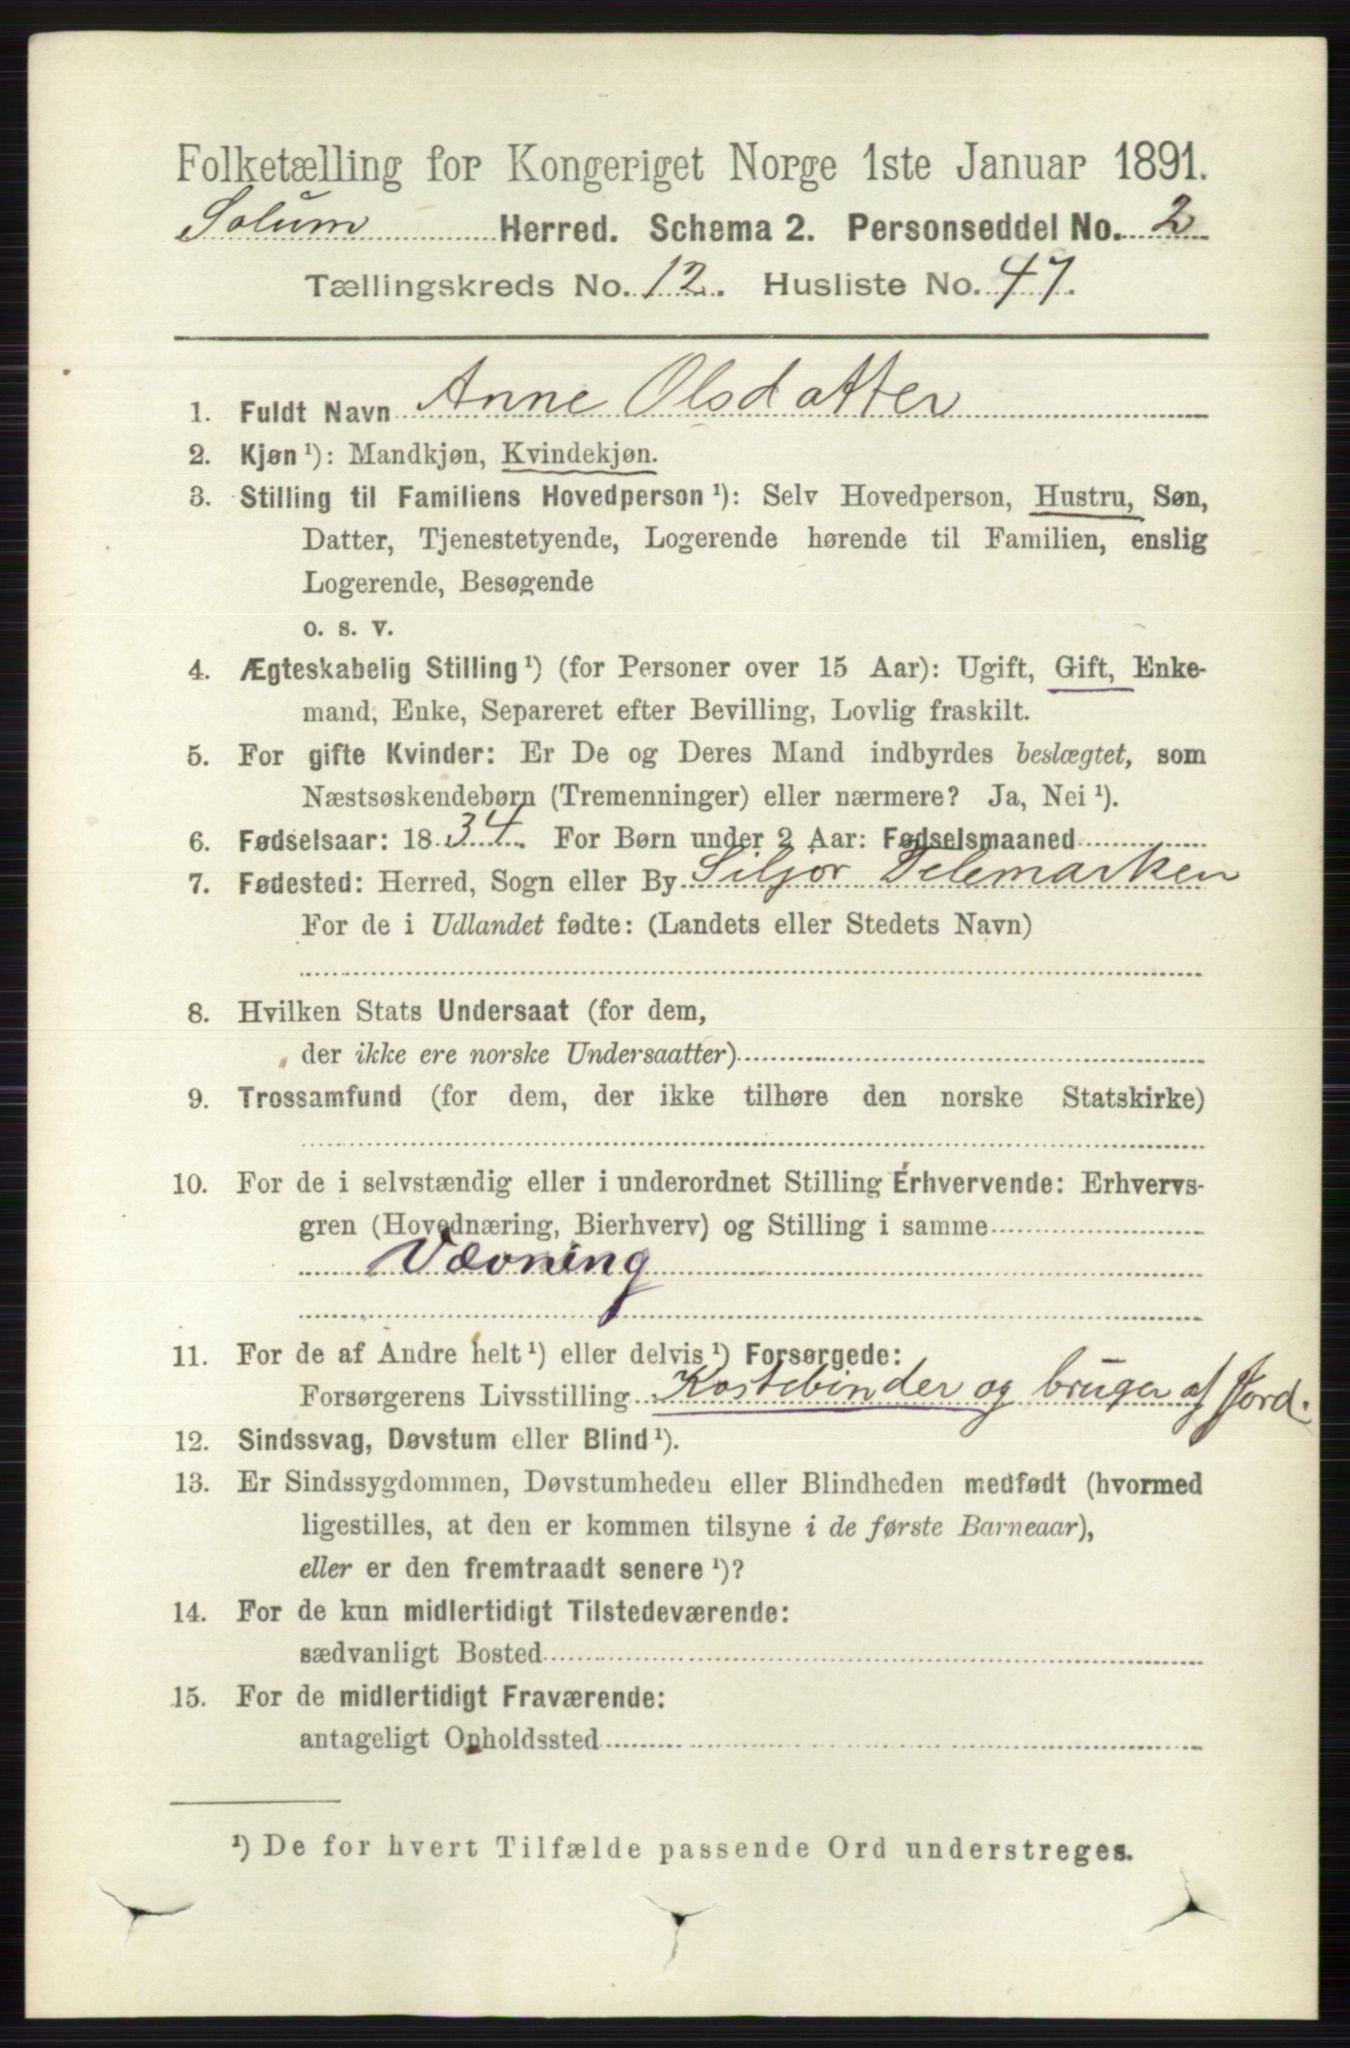 Folketælling for Kongeriget Norge 1ste Januar 1891.
Solum Herred. Schema 2. Personseddel No. 2
Tællingskreds No. 12. Husliste No. 47.
1. Fuldt Navn Anne Olsdatter
2. Kjøn ¹): Mandkjøn, Kvindekjøn.
3. Stilling til Familiens Hovedperson ¹): Selv Hovedperson, Hustru, Søn,
Datter, Tjenestetyende, Logerende hørende til Familien, enslig
Logerende, Besøgende
o. s. v.
4. Ægteskabelig Stilling ¹) (for Personer over 15 Aar): Ugift, Gift, Enke-
mand, Enke, Separeret efter Bevilling, Lovlig fraskilt.
5. For gifte Kvinder: Er De og Deres Mand indbyrdes beslægtet, som
Næstsøskendebørn (Tremenninger) eller nærmere? Ja, Nei ¹).
6. Fødselsaar: 1834. For Børn under 2 Aar: Fødselsmaaned
7. Fødested: Herred, Sogn eller By Siljor Telemarken
For de i Udlandet fødte: (Landets eller Stedets Navn)
8. Hvilken Stats Undersaat (for dem,
der ikke ere norske Undersaatter)
9. Trossamfund (for dem, der ikke tilhøre den norske Statskirke)
10. For de i selvstændig eller i underordnet Stilling Erhvervende: Erhvervs-
gren (Hovednæring, Bierhverv) og Stilling i samme
Vævning
11. For de af Andre helt ¹) eller delvis ¹) Forsørgede:
Forsørgerens Livsstilling Kostebinder og bruger af Jord.
12. Sindssvag, Døvstum eller Blind ¹).
13. Er Sindssygdommen, Døvstumheden eller Blindheden medfødt (hvormed
ligestilles, at den er kommen tilsyne i de første Barneaar),
eller er den fremtraadt senere ¹)?
14. For de kun midlertidigt Tilstedeværende:
sædvanligt Bosted
15. For de midlertidigt Fraværende:
antageligt Opholdssted
¹) De for hvert Tilfælde passende Ord understreges.